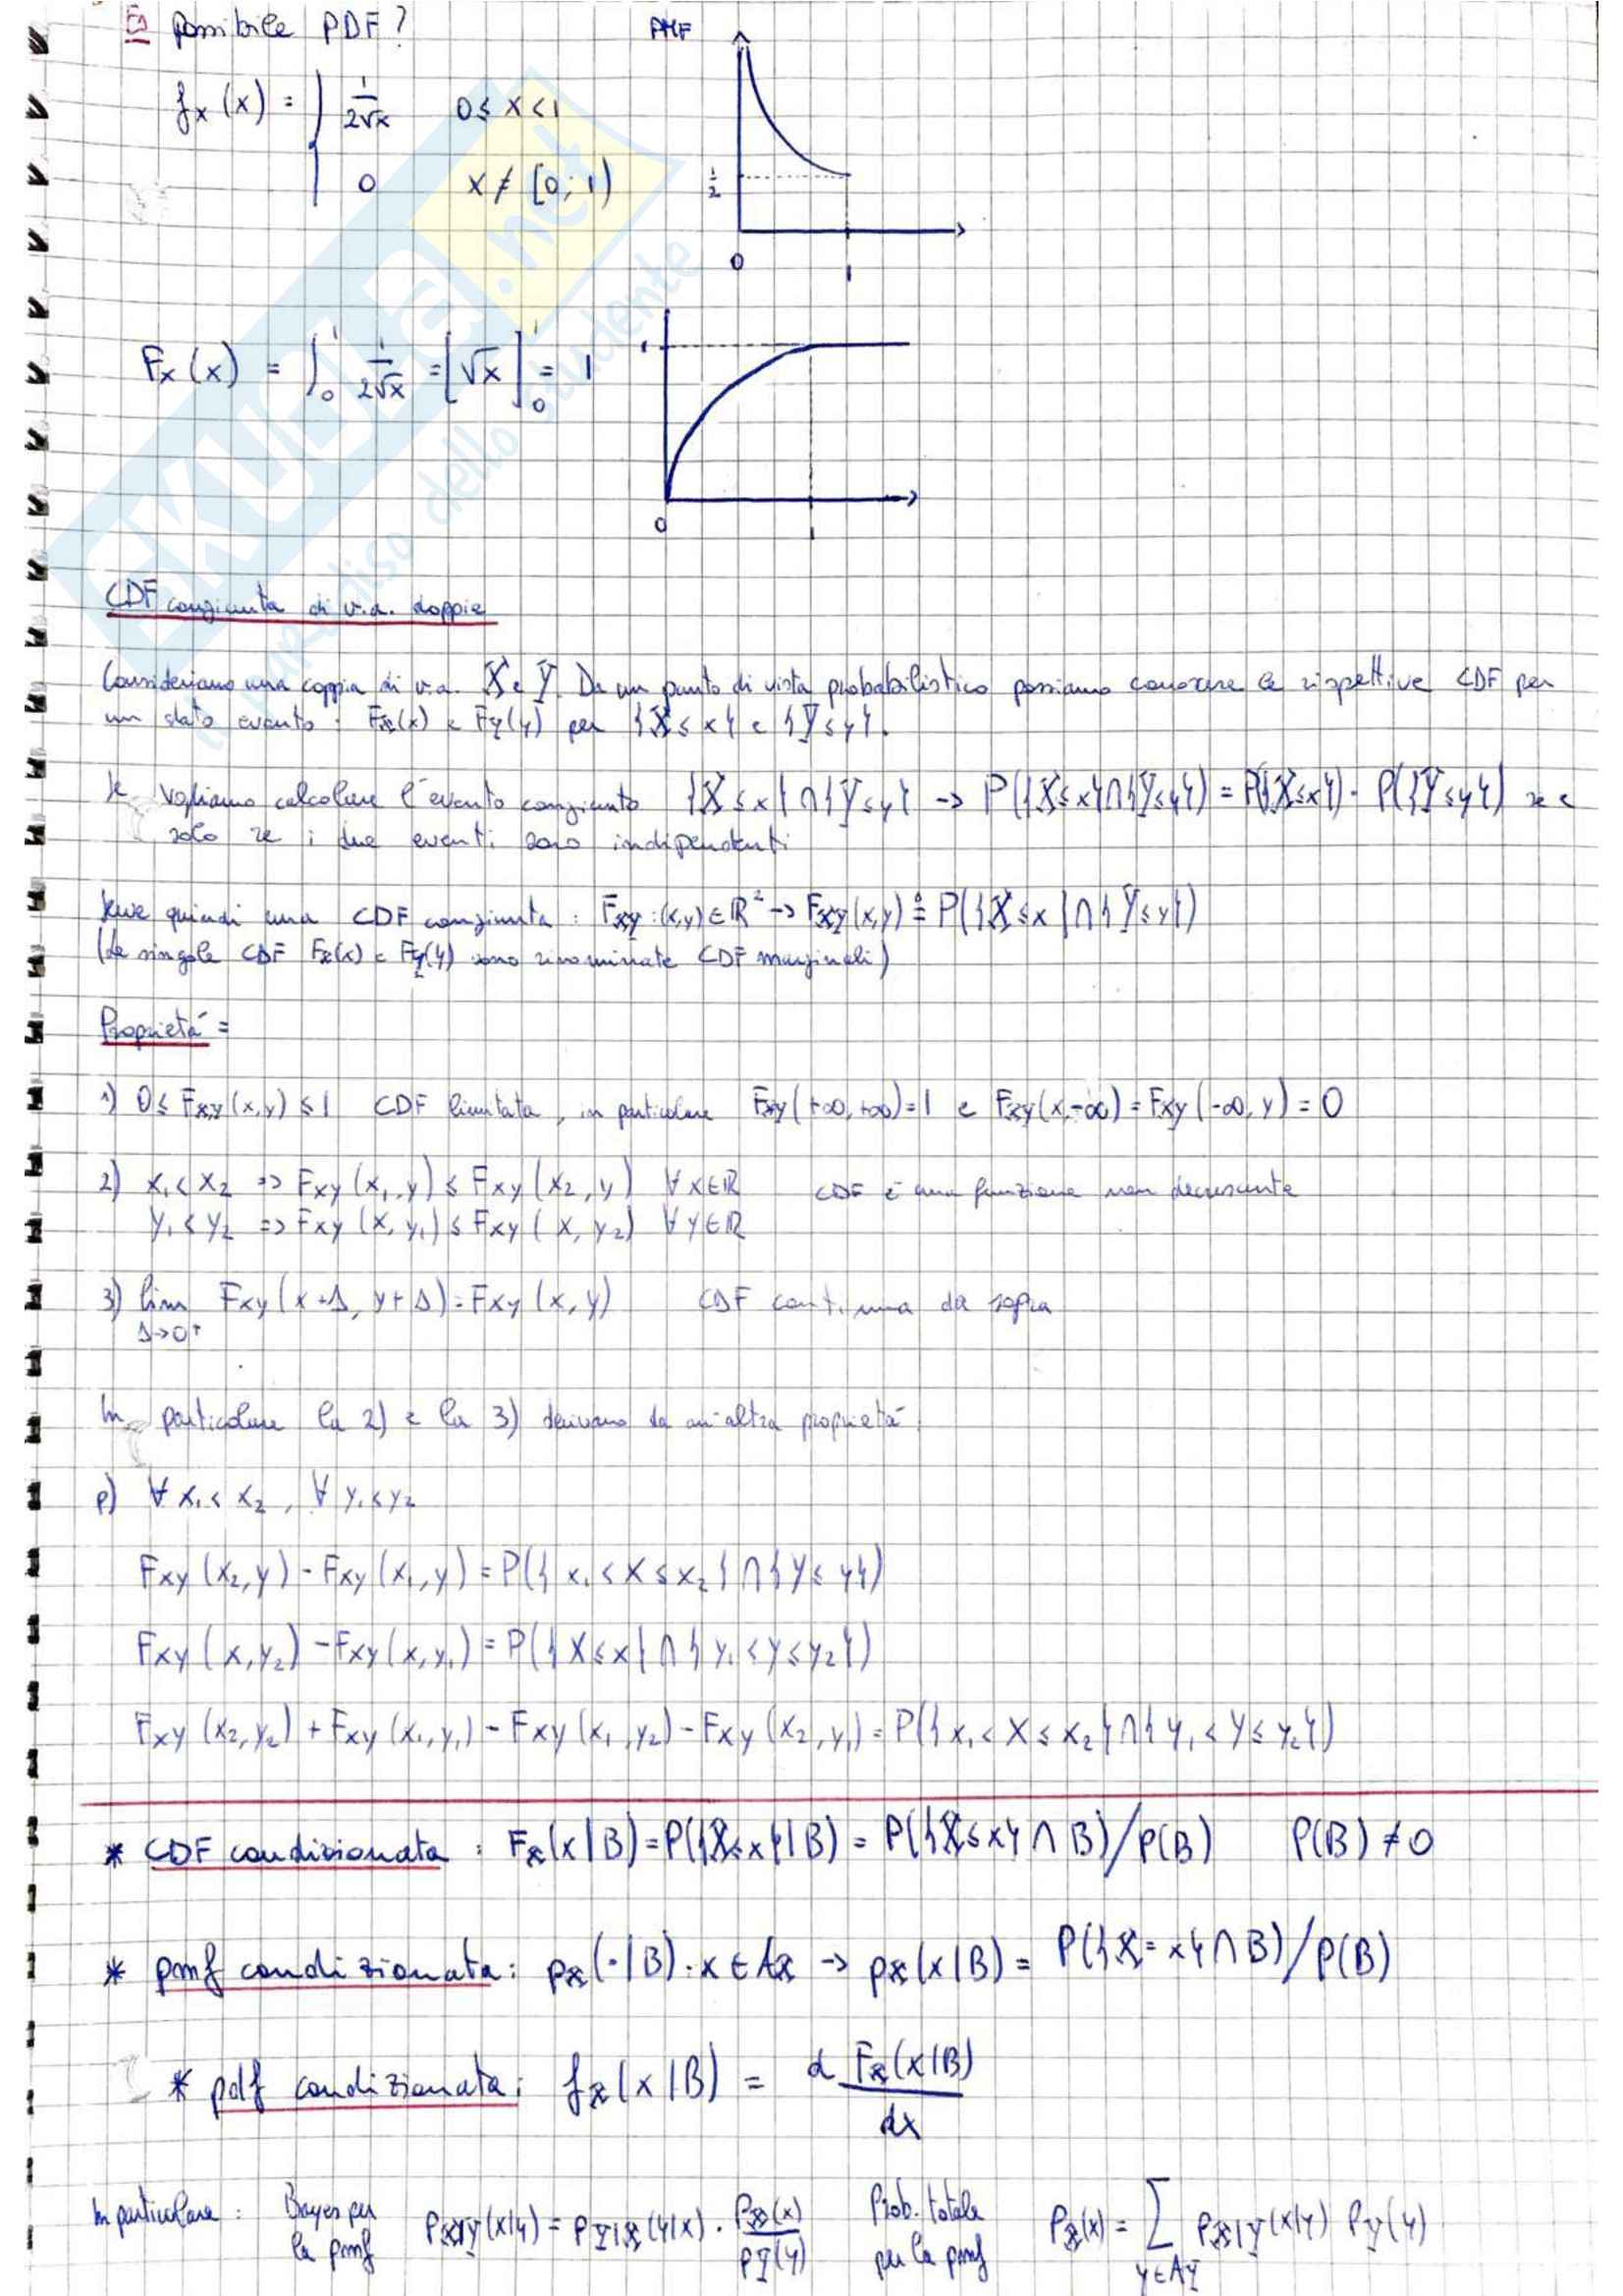 Es possibile PDF?
PMF
fx(x) = { 1/2√x 0≤x<1
0 x≠[0;1)
1/2
0 1
Fx(x) = ∫₀¹ 1/2√x = [√x]₀¹ = 1
1
0 1
SKUOLA.net
il paradiso dello studente
CDF congiunta di v.a. doppie
Consideriamo una coppia di v.a. X e Y. Da un punto di vista probabilistico possiamo conoscere le rispettive CDF per
un dato evento: Fx(x) e Fy(y) per {X≤x} e {Y≤y}.
Se vogliamo calcolare l'evento congiunto {X≤x}∩{Y≤y} → P({X≤x}∩{Y≤y}) = P({X≤x})·P({Y≤y}) se e
solo se i due eventi sono indipendenti
Serve quindi una CDF congiunta: Fxy:(x,y)∈ℝ² → Fxy(x,y) ≜ P({X≤x}∩{Y≤y})
(le singole CDF Fx(x) e Fy(y) sono rinominate CDF marginali)
Proprietà =
1) 0≤Fxy(x,y)≤1 CDF limitata, in particolare Fxy(+∞,+∞)=1 e Fxy(x,-∞)=Fxy(-∞,y)=0
2) x₁<x₂ => Fxy(x₁,y)≤Fxy(x₂,y) ∀x∈ℝ CDF è una funzione non decrescente
y₁<y₂ => Fxy(x,y₁)≤Fxy(x,y₂) ∀y∈ℝ
3) lim Fxy(x+Δ, y+Δ)=Fxy(x,y) CDF continua da sopra
Δ→0⁺
In particolare la 2) e la 3) derivano da un'altra proprietà
p) ∀x₁<x₂, ∀y₁<y₂
Fxy(x₂,y)-Fxy(x₁,y)=P({x₁<X≤x₂}∩{Y≤y})
Fxy(x,y₂)-Fxy(x,y₁)=P({X≤x}∩{y₁<Y≤y₂})
Fxy(x₂,y₂)+Fxy(x₁,y₁)-Fxy(x₁,y₂)-Fxy(x₂,y₁)=P({x₁<X≤x₂}∩{y₁<Y≤y₂})
* CDF condizionata: Fx(x|B)=P({X≤x}|B)=P({X≤x}∩B)/P(B) P(B)≠0
* pmf condizionata: px(·|B): x∈Ax → px(x|B)= P({X=x}∩B)/P(B)
* pdf condizionata: fx(x|B) = d Fx(x|B)/dx
In particolare: Bayes per la pmf px|y(x|y)=py|x(y|x)·px(x)/py(y) Prob. totale per la pmf px(x)=∑y∈Ay px|y(x|y) py(y)